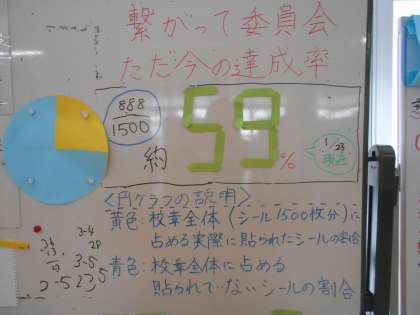 繋がって委員会
ただ今の達成率
888
1500
約 59%
1/23
現在
<円グラフの説明>
黄色:校章全体(シール1500枚分)に
占める実際に貼られたシールの割合
青色:校章全体に占める
貼られていないシールの割合
3-4
3-5